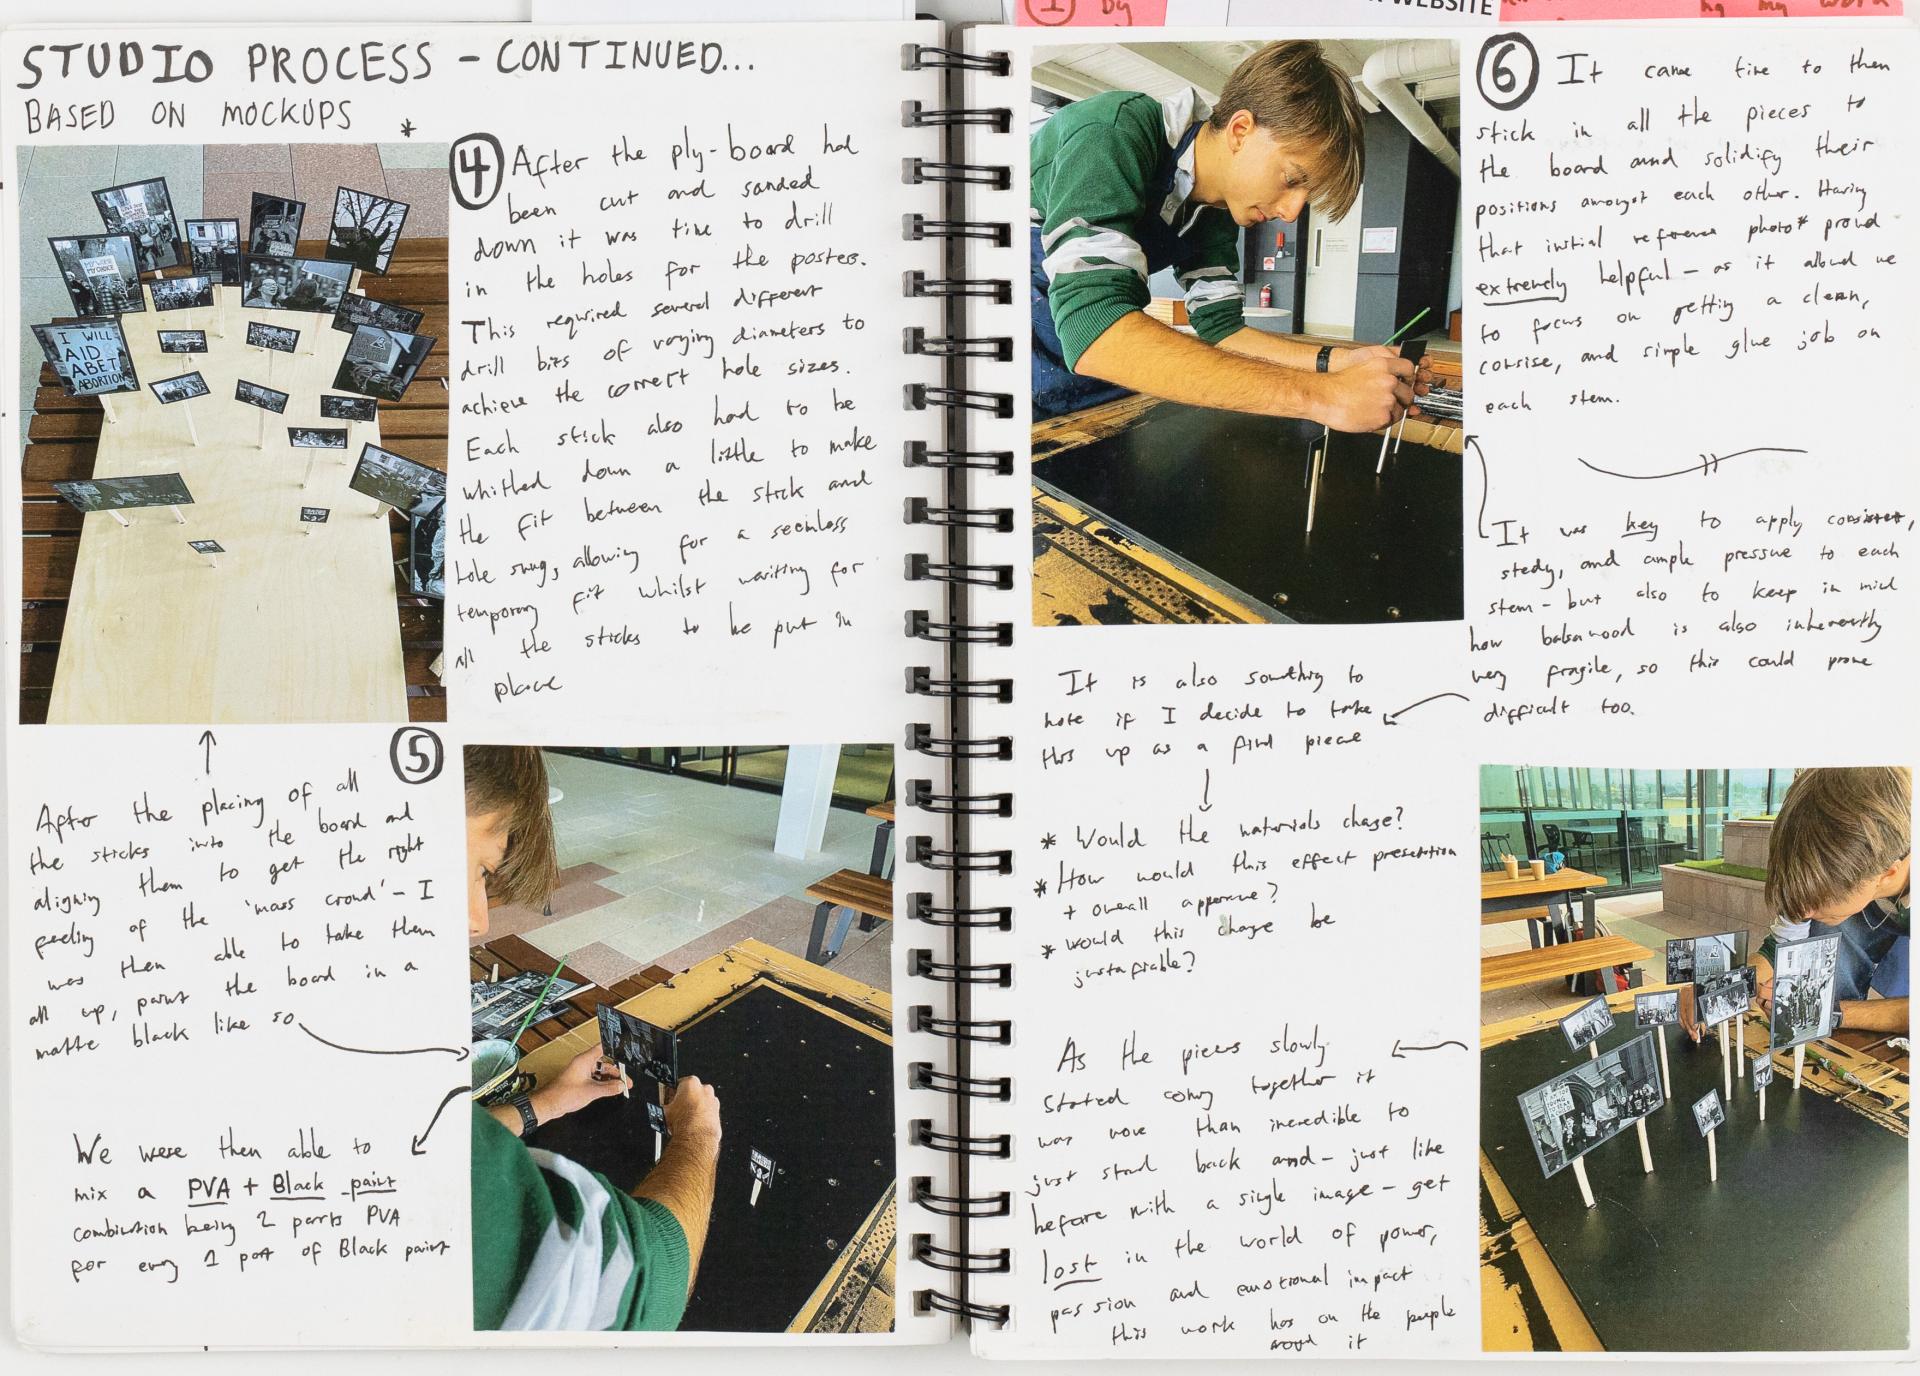 STUDIO PROCESS - CONTINUED...
BASED ON MOCKUPS *
4 After the ply-board had
been cut and sanded
down it was time to drill
in the holes for the posters.
This required several different
drill bits of varying diameters to
achieve the correct hole sizes.
Each stick also had to be
whittled down a little to make
the fit between the stick and
hole snug, allowing for a seemless
temporary fit whilst waiting for
all the sticks to be put in
place
MY CHOICE
I WILL
AID
ABET
ABORTION
5
After the placing of all
the sticks into the board and
aligning them to get the right
feeling of the 'mass crowd' - I
was then able to take them
all up, paint the board in a
matte black like so
We were then able to
mix a PVA + Black paint
combination being 2 parts PVA
for every 1 part of Black paint
1 by
WEBSITE
my work
6 It came time to then
stick in all the pieces to
the board and solidify their
positions amongst each other. Having
that initial reference photo* proved
extremely helpful - as it allowed me
to focus on getting a clean,
consise, and simple glue job on
each stem.
It was key to apply consistent,
stedy, and ample pressure to each
stem - but also to keep in mind
how balsawood is also inherently
very fragile, so this could prove
difficult too.
It is also something to
note if I decide to take
this up as a final piece
* Would the materials change?
* How would this effect presentation
+ overall apperance?
* would this change be
justafiable?
As the pieces slowly
started coming together it
was more than incredible to
just stand back and - just like
before with a single image - get
lost in the world of power,
passion and emotional impact
this work has on the people
around it